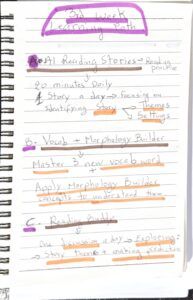 3rd Week
Learning Path
A. AI Reading Stories → Reading
practice
20 minutes Daily
1 Story a day → Focusing on
identifying Story → Themes
→ Settings
B. Vocab + Morphology Builder
Master 3 new vocab word
+
Apply Morphology Builder
concepts to understand them
C. Reading Builder
One a day → Exploring:
→ Story Themes + making prediction